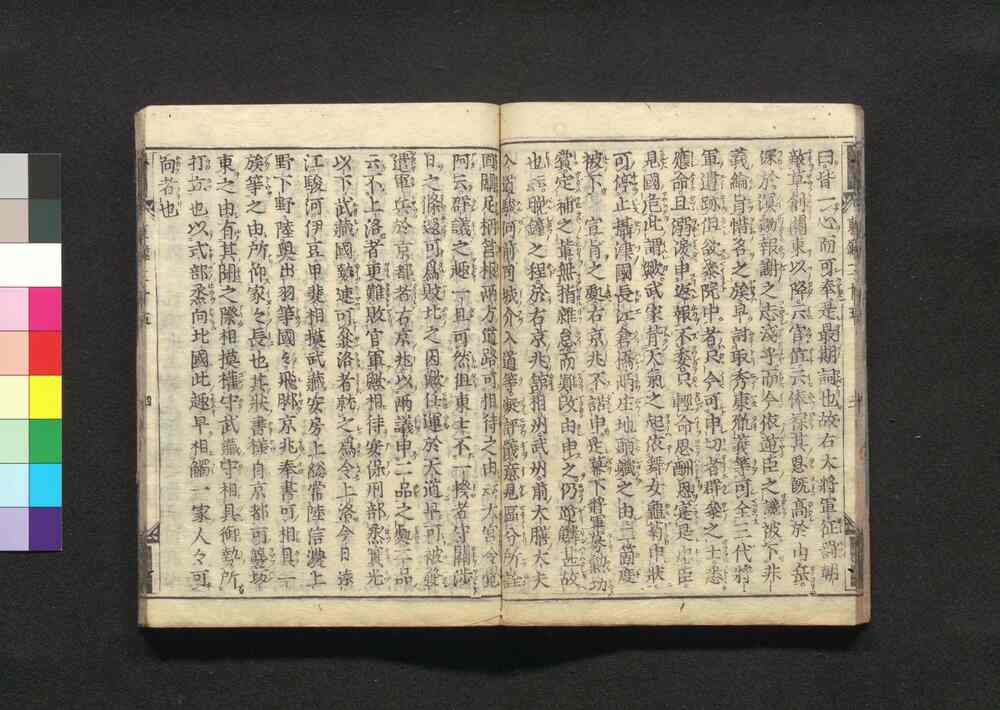 曰皆一心而可奉是最期詞也故右大將軍征罸朝
敵草創關東以降云官位云俸禄其恩既高於山岳
深於溟渤報謝之志淺乎而今依逆臣之讒被下非
義綸旨惜名之族早討取秀康胤義等可全三代將
軍遺跡但欲參院中者只今可申切者群參之士悉
應命且溺涙申返報不委只輕命思酬恩寔是忠臣
見國危此謂歟武家背天氣之起依舞女龜菊申狀
可停止攝津國長江倉橋兩庄地頭職之由二箇度
被下 宣旨之處右京兆不諾申是幕下將軍募勲功
賞定補之輩無指雜怠而難改由申之仍逆鱗甚故
也云晩鐘之程於右京兆舘相州武州前大膳大夫
入道駿河前司城介入道等凝評議意見區分所詮
固關足柄筥根兩方道路可相待之由云大官令覺
阿云群議之趣一旦可然但東士不一揆者守關渉
日之條還可爲敗北之因歟任運於天道早可被發
遣軍兵於京都者右京兆以兩議申二品之處二品
云不上洛者更難敗官軍歟相待安保刑部丞實光
以下武藏國勢速可參洛者就之爲令上洛今日遠
江駿河伊豆甲斐相摸武藏安房上総常陸信濃上
野下野陸奥出羽等國々飛脚京兆奉書可相具一
族等之由所仰家々長也其狀書樣自京都可襲坂
東之由有其聞之際相摸權守武藏守相具御勢所
打立也以式部丞向北國此趣早相觸一家人々可
向者也